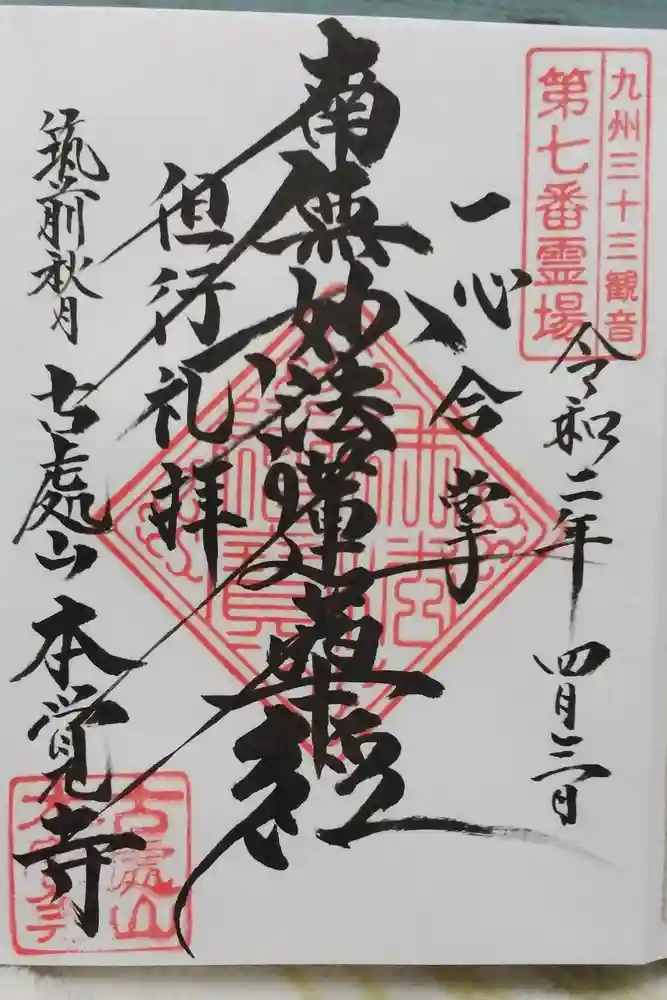 九州三十三観音
第七番霊場
令和二年四月三日
一心合掌
南無妙法蓮華経
但行礼拝
筑前秋月
古處山本覚寺
古處山